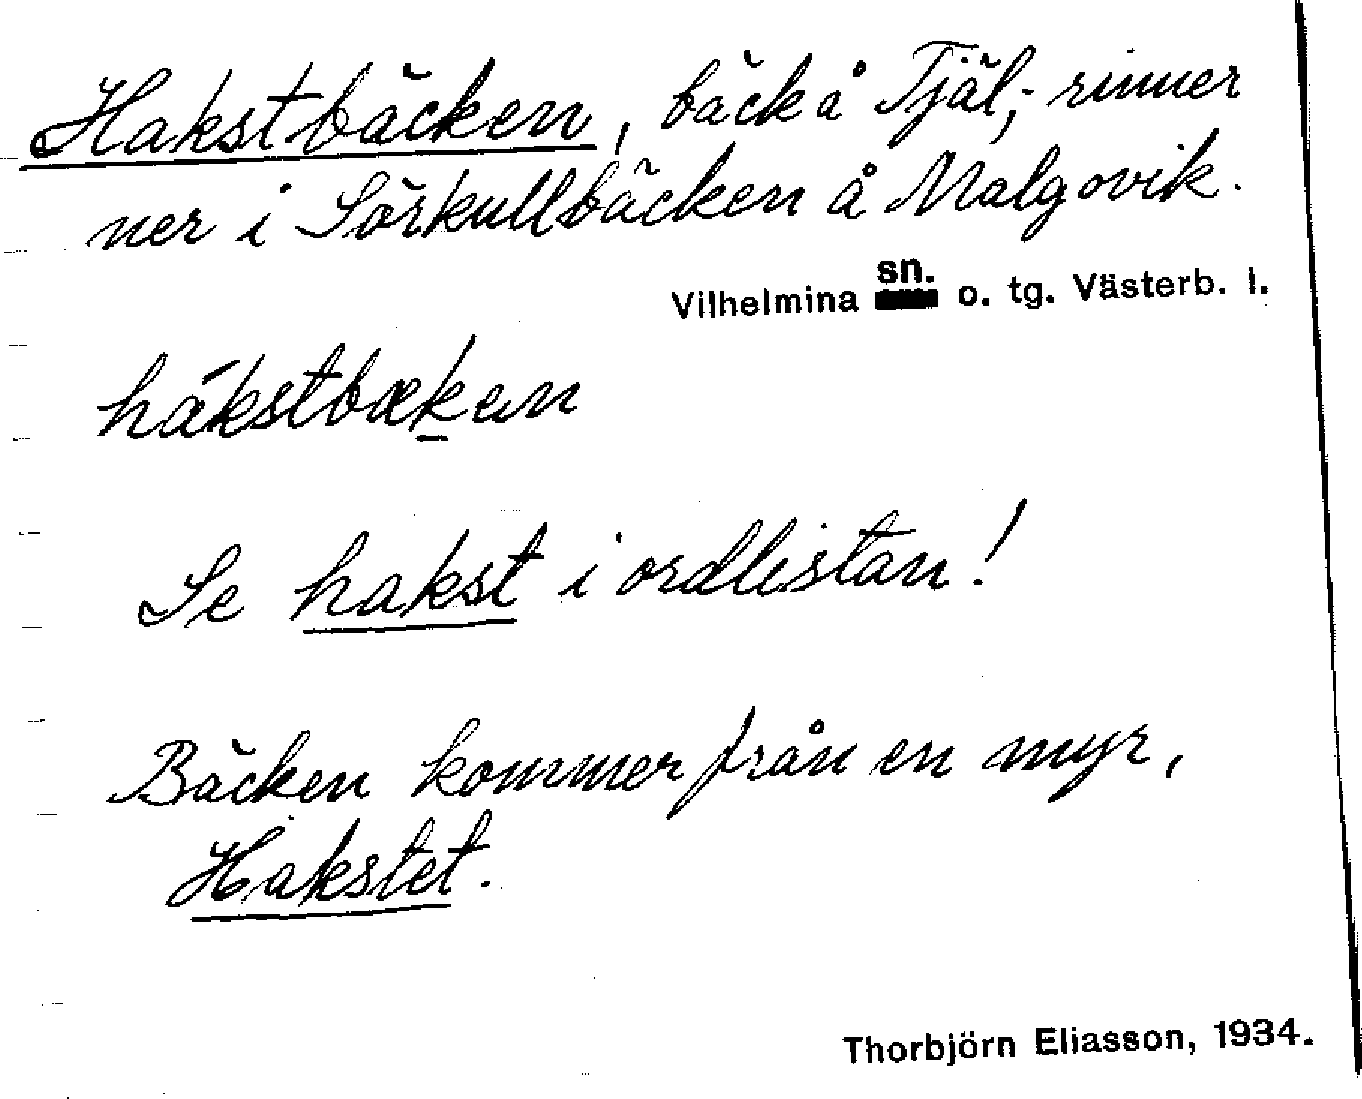 Hakstbäcken, bäck å Tjäl; rinner
ner i Sörkullbäcken å Malgovik.
Vilhelmina sn. o. tg. Västerb. l.
hákstbæken
Se hakst i ordlistan!
Bäcken kommer från en myr,
Hakstet.
Thorbjörn Eliasson, 1934.